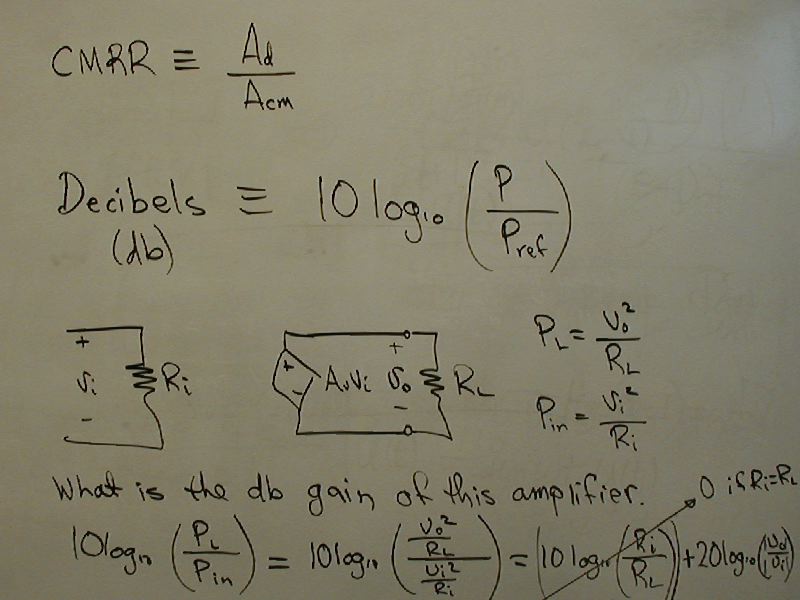 CMRR ≡ Ad / Acm
Decibels ≡ 10 log₁₀ (P / Pref)
(db)
+ Vi - Ri
+ - AvVi + Vo - RL
PL = Vo² / RL
Pin = Vi² / Ri
What is the db gain of this amplifier.
0 if Ri=RL
10log₁₀ (PL / Pin) = 10log₁₀ ((Vo² / RL) / (Vi² / Ri)) = (10 log₁₀ (Ri / RL)) + 20log₁₀ (|Vo| / |Vi|)